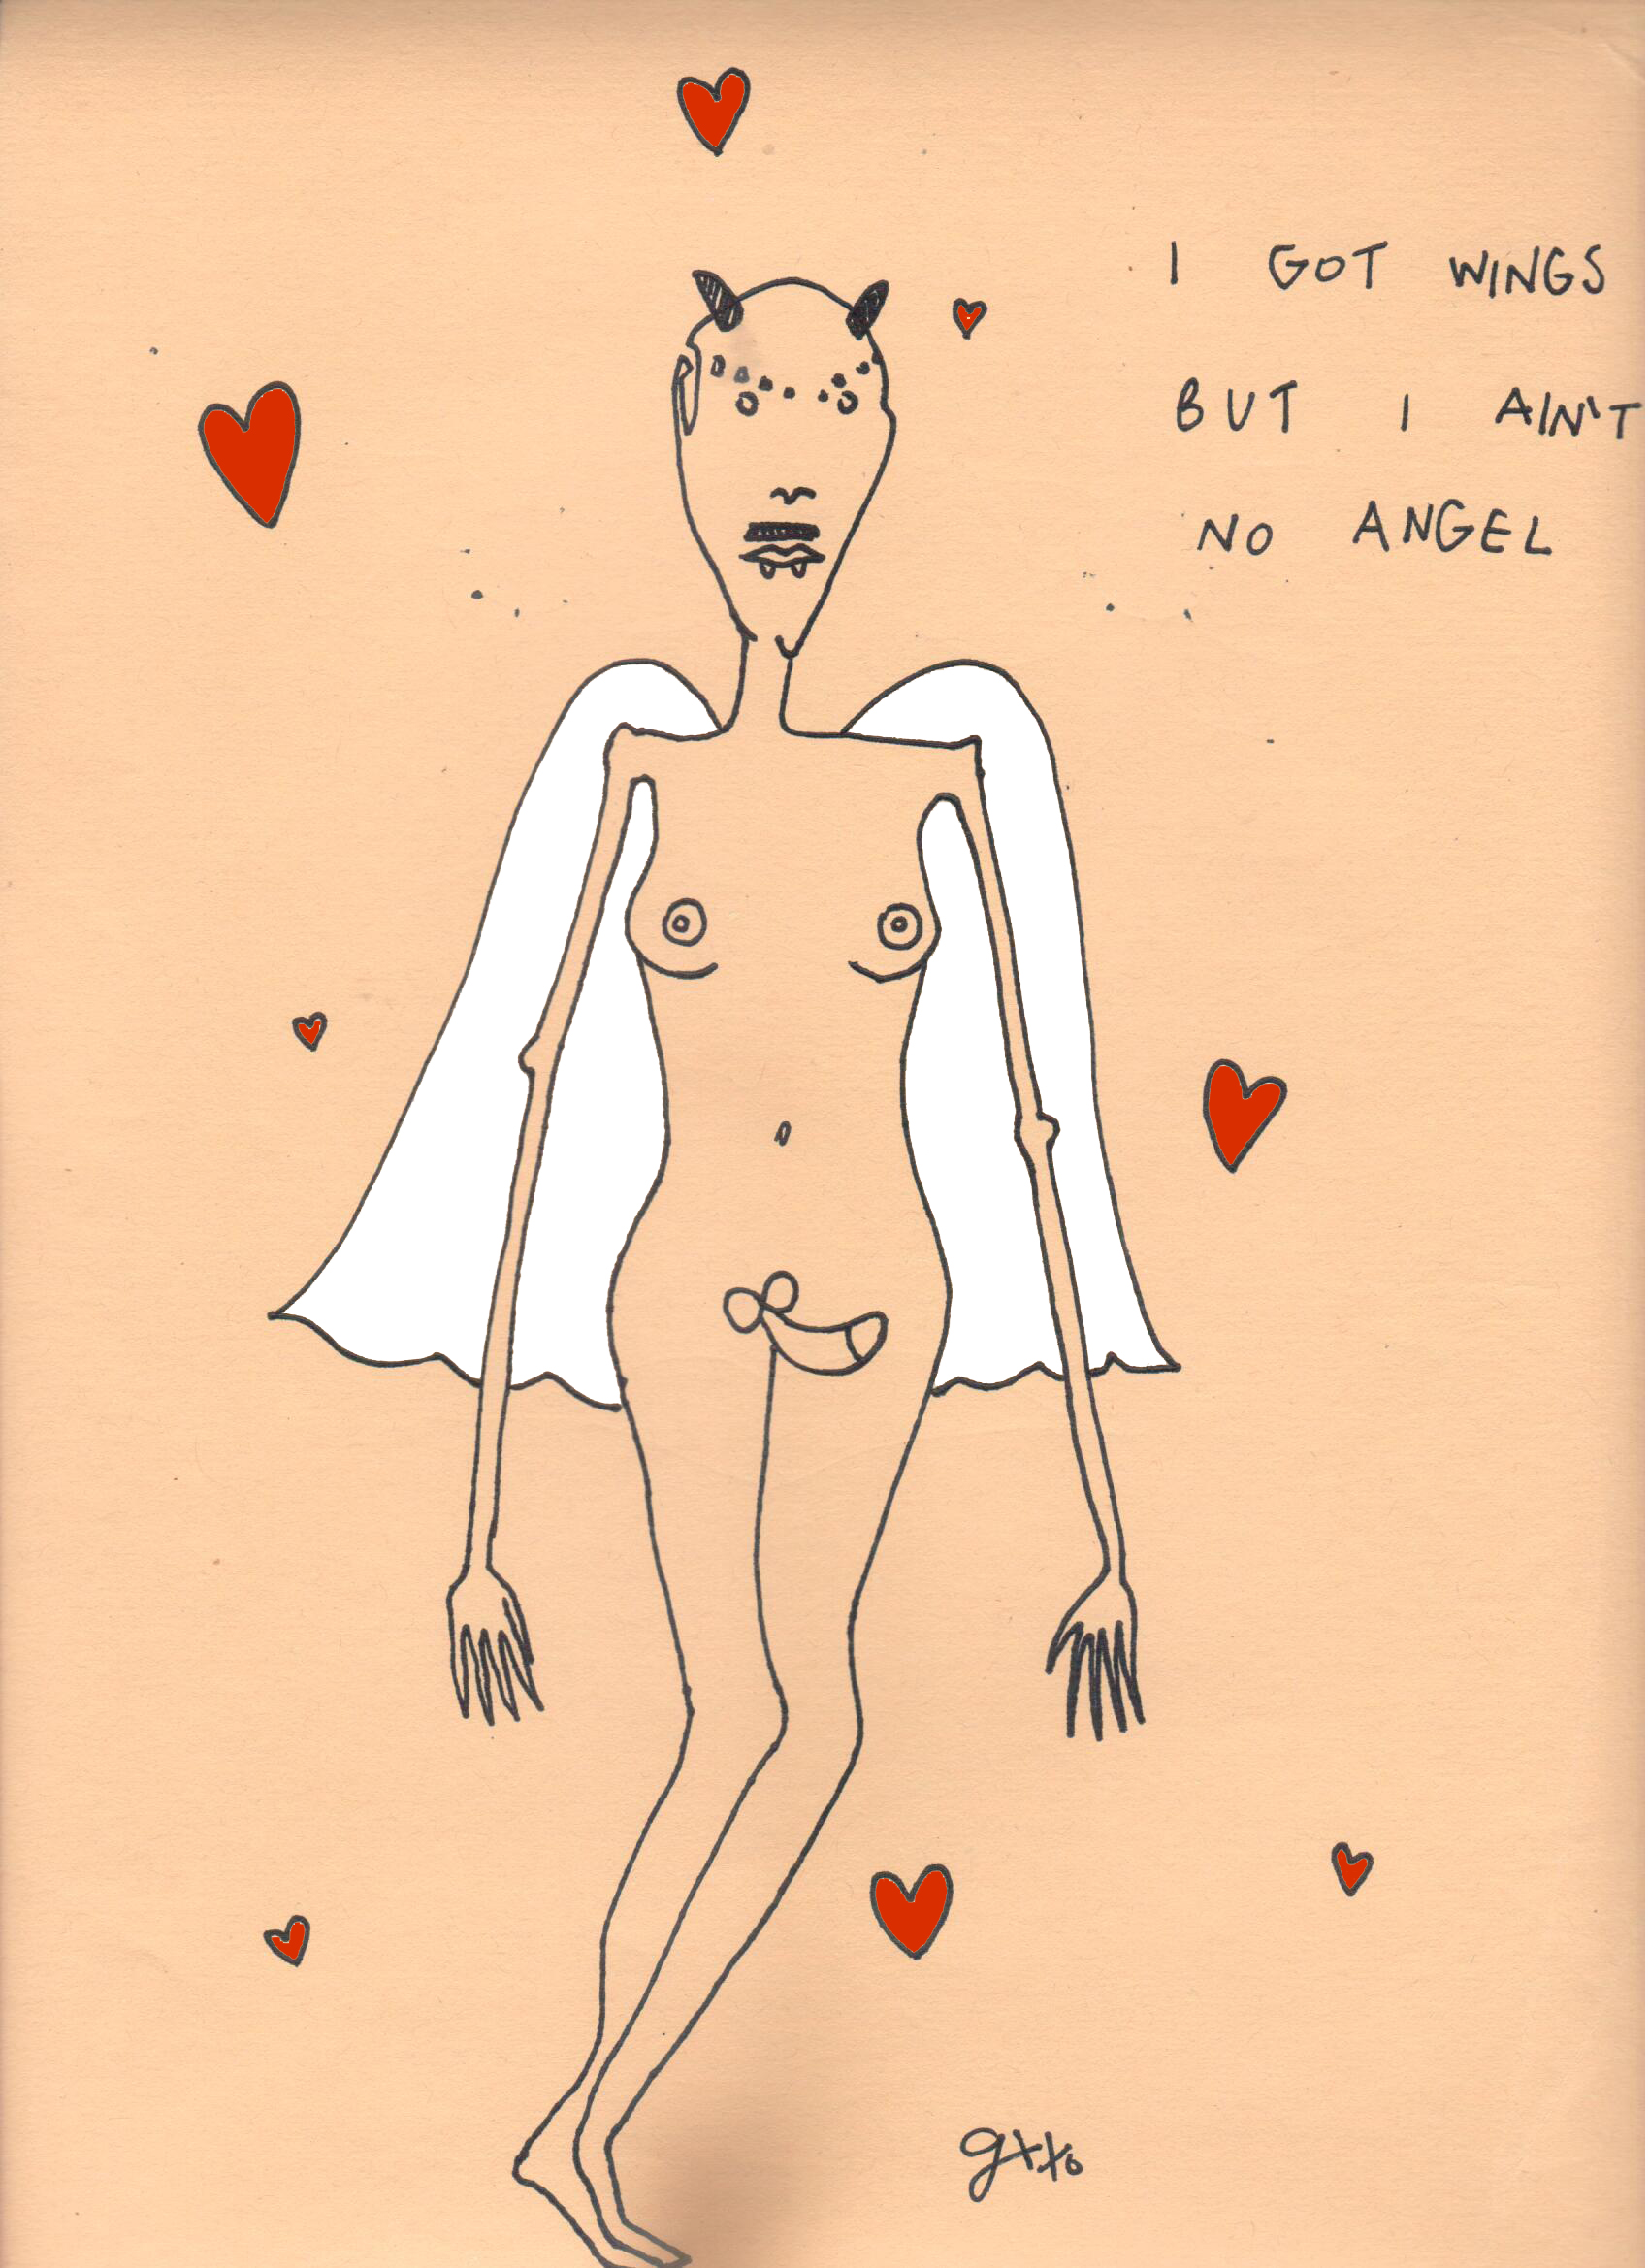 I GOT WINGS
BUT I AIN'T
NO ANGEL
gxxo